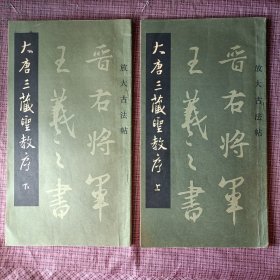 放大古法帖
晋右将軍
王羲之書
大唐三藏聖教序 下
放大古法帖
晋右将軍
王羲之書
大唐三藏聖教序 上